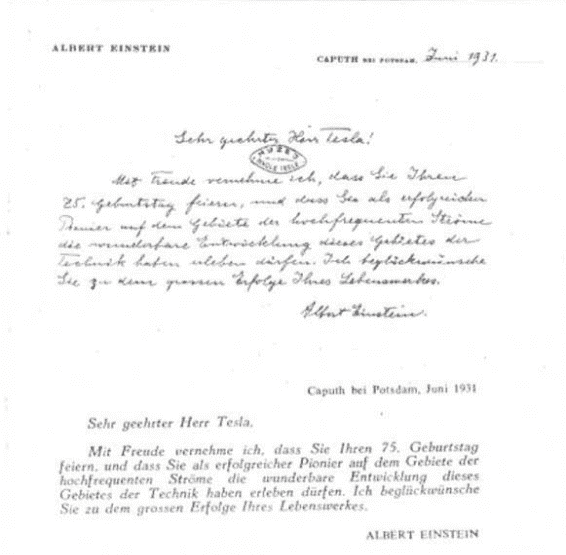 ALBERT EINSTEIN
CAPUTH BEI POTSDAM, Juni 1931.
Sehr geehrter Herr Tesla!
Mit Freude vernehme ich, dass Sie Ihren
75. Geburtstag feiern, und dass Sie als erfolgreicher
Pionier auf dem Gebiete der hochfrequenten Ströme
die wunderbare Entwicklung dieses Gebietes der
Technik haben erleben dürfen. Ich beglückwünsche
Sie zu dem grossen Erfolge Ihres Lebenswerkes.
Albert Einstein.
Caputh bei Potsdam, Juni 1931
Sehr geehrter Herr Tesla,
Mit Freude vernehme ich, dass Sie Ihren 75. Geburtstag
feiern, und dass Sie als erfolgreicher Pionier auf dem Gebiete der
hochfrequenten Ströme die wunderbare Entwicklung dieses
Gebietes der Technik haben erleben dürfen. Ich beglückwünsche
Sie zu dem grossen Erfolge Ihres Lebenswerkes.
ALBERT EINSTEIN